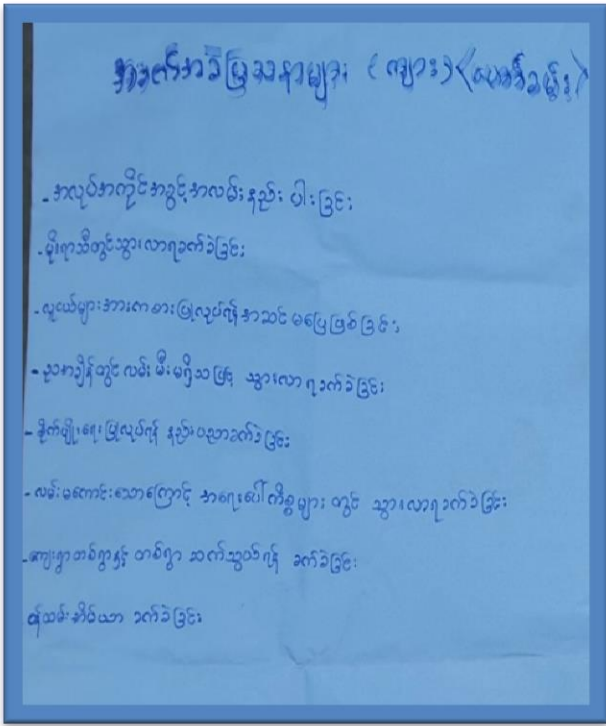 အခက်အခဲပြဿနာများ (ကျား)
- အလုပ်အကိုင်အခွင့်အလမ်းနည်းပါးခြင်း
- မိုးရာသီတွင်သွားလာရခက်ခဲခြင်း
- လူငယ်များအားကစားပြုလုပ်ရန်အဆင်မပြေဖြစ်ခြင်း
- ညအချိန်တွင်လမ်းမီးမရှိသဖြင့် သွားလာရခက်ခဲခြင်း
- စိုက်ပျိုးရေးပြုလုပ်ရန် နည်းပညာခက်ခဲခြင်း
- လမ်းမကောင်းသောကြောင့် အရေးပေါ်ကိစ္စများတွင် သွားလာရခက်ခဲခြင်း
- ကျေးရွာတစ်ရွာနှင့် တစ်ရွာ ဆက်သွယ်ရန် ခက်ခဲခြင်း
ဝန်ထမ်းအိမ်ယာ ခက်ခဲခြင်း